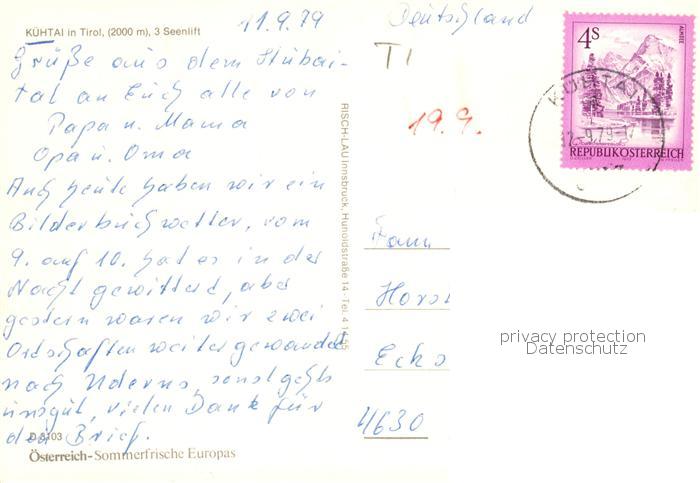 11.9.79
KÜHTAI in Tirol, (2000 m), 3 Seenlift
Grüße aus dem Stubai-
tal an Euch alle von
Papa u. Mama
Opa u. Oma
Auch heute haben wir ein
Bilderbuchwetter, vom
9. auf 10. hat es in der
Nacht gewittert, aber
gestern waren wir zwei
Ortschaften weiter gewandert
nach Neder, sonst gehts
uns gut, vielen Dank für
den Brief.
D 8103
Österreich-Sommerfrische Europas
RISCH-LAU Innsbruck, Hunoldstraße 14 - Tel. 4 14 55
Deutschland
T1
19.9.
4S
ALMSEE
REPUBLIK ÖSTERREICH
KÜHTAI
12.-9.79-17
Fam
Horst
Ecks
4630
privacy protection
Datenschutz